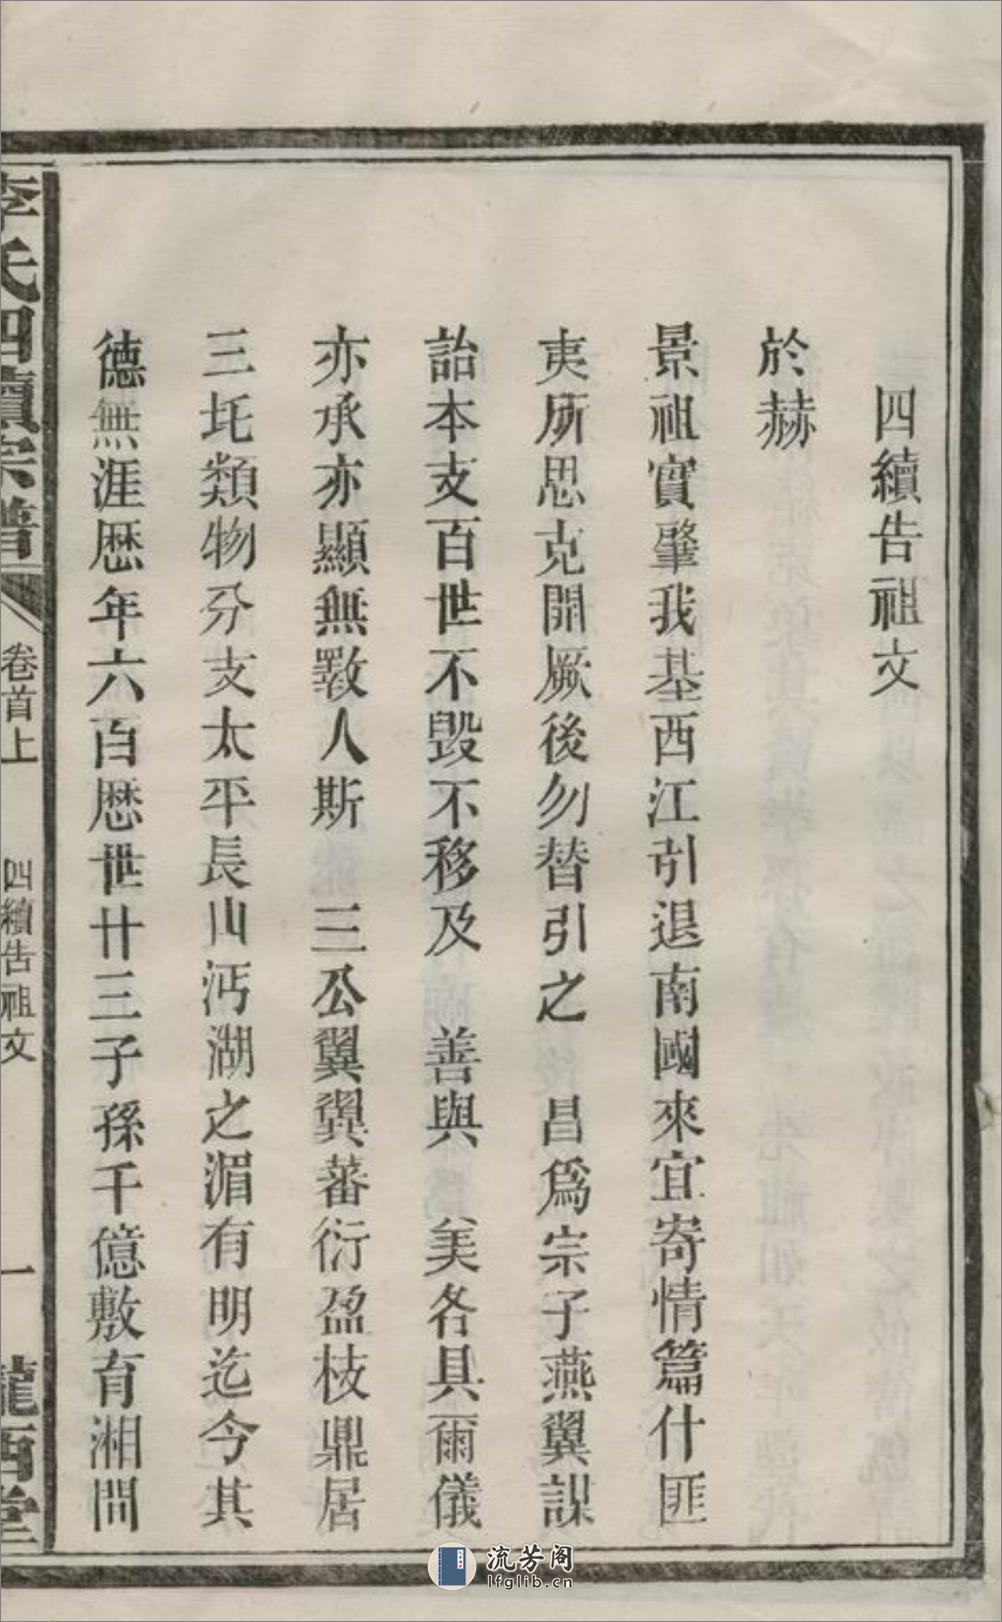 四續告祖文
於赫
景祖實肇我基西江引退南國來宜寄情篇什匪
夷所思克開厥後勿替引之 昌爲宗子燕翼謀
詒本支百世不毀不移及 善與 美各具爾儀
亦承亦顯無斁人斯 三公翼翼蕃衍盈枝鼎居
三坨類物分支太平長山沔湖之湄有明迄今其
德無涯歷年六百歷世廿三子孫千億敷有湘間
李氏四續宗譜 卷首上 四續告祖文 一 隴西堂
流芳阁
lfglib.cn